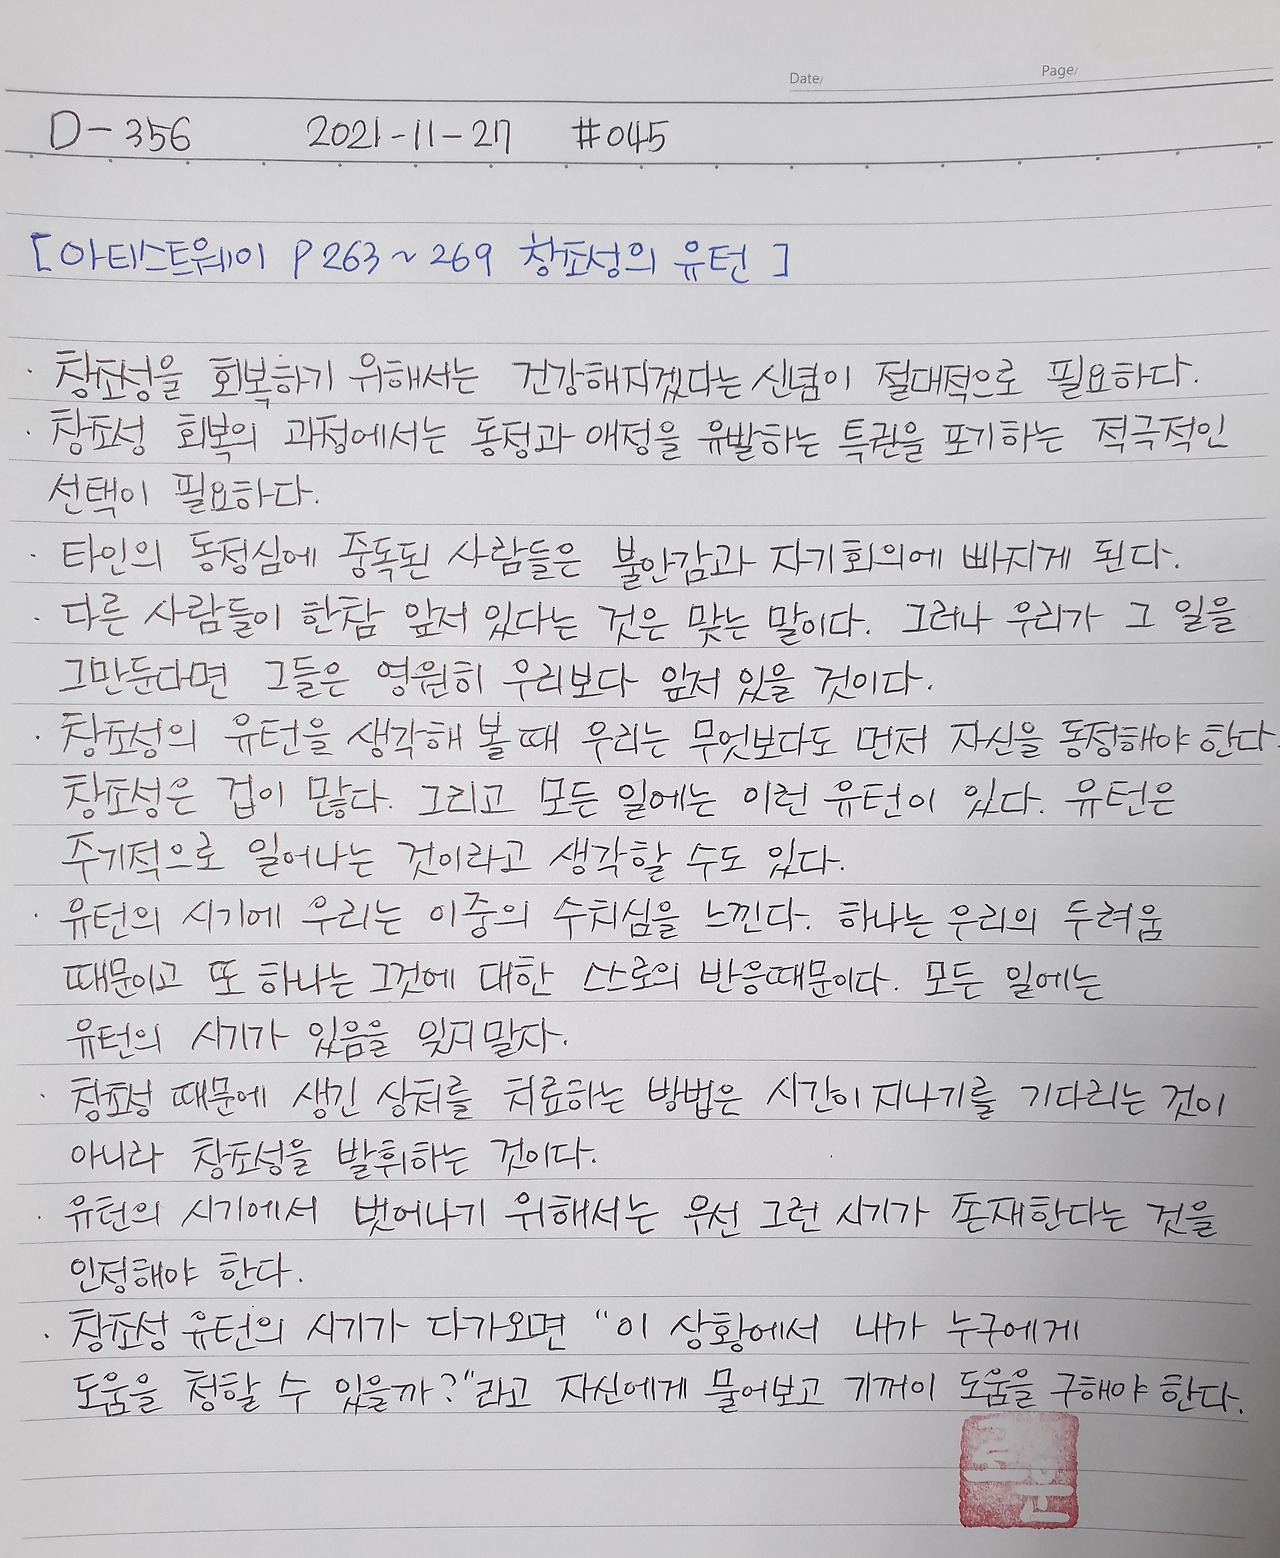 Date/
Page/
D-356 2021-11-27 #045
[아티스트웨이 P 263~269 창조성의 유턴]
· 창조성을 회복하기 위해서는 건강해지겠다는 신념이 절대적으로 필요하다.
· 창조성 회복의 과정에서는 동정과 애정을 유발하는 특권을 포기하는 적극적인
선택이 필요하다.
· 타인의 동정심에 중독된 사람들은 불안감과 자기회의에 빠지게 된다.
· 다른 사람들이 한참 앞서 있다는 것은 맞는 말이다. 그러나 우리가 그 일을
그만둔다면 그들은 영원히 우리보다 앞서 있을 것이다.
· 창조성의 유턴을 생각해 볼 때 우리는 무엇보다도 먼저 자신을 동정해야 한다.
창조성은 겁이 많다. 그리고 모든 일에는 이런 유턴이 있다. 유턴은
주기적으로 일어나는 것이라고 생각할 수도 있다.
· 유턴의 시기에 우리는 이중의 수치심을 느낀다. 하나는 우리의 두려움
때문이고 또 하나는 그것에 대한 스스로의 반응때문이다. 모든 일에는
유턴의 시기가 있음을 잊지말자.
· 창조성 때문에 생긴 상처를 치료하는 방법은 시간이 지나기를 기다리는 것이
아니라 창조성을 발휘하는 것이다.
· 유턴의 시기에서 벗어나기 위해서는 우선 그런 시기가 존재한다는 것을
인정해야 한다.
· 창조성 유턴의 시기가 다가오면 "이 상황에서 내가 누구에게
도움을 청할 수 있을까?"라고 자신에게 물어보고 기꺼이 도움을 구해야 한다.